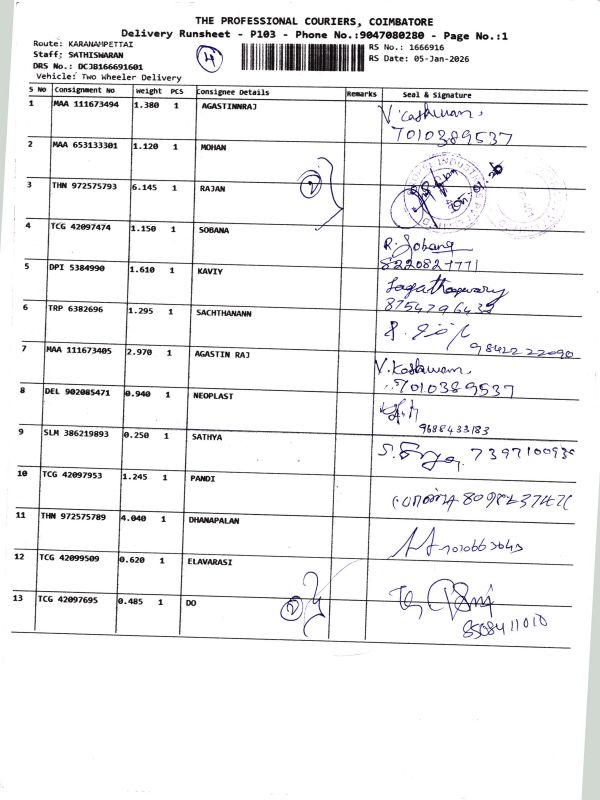 THE PROFESSIONAL COURIERS, COIMBATORE
Delivery Runsheet - P103 - Phone No.:9047080280 - Page No.:1
Route: KARANAMPETTAI 4 RS No.: 1666916
Staff: SATHISWARAN RS Date: 05-Jan-2026
DRS No.: DCJB166691601
Vehicle: Two Wheeler Delivery
S No Consignment No Weight PCS Consignee Details Remarks Seal & Signature
1 MAA 111673494 1.380 1 AGASTINNRAJ
7010389537
2 MAA 653133301 1.120 1 MOHAN
3 THN 972575793 6.145 1 RAJAN 2
4 TCG 42097474 1.150 1 SOBANA R. Sobana
8220827771
5 DPI 5384990 1.610 1 KAVIY
8754796432
6 TRP 6382696 1.295 1 SACHTHANANN
9842222090
7 MAA 111673405 2.970 1 AGASTIN RAJ
7010389537
8 DEL 902085471 0.940 1 NEOPLAST
9688433183
9 SLM 386219893 0.250 1 SATHYA
10 TCG 42097953 1.245 1 PANDI
11 THN 972575789 4.040 1 DHANAPALAN
12 TCG 42099509 0.620 1 ELAVARASI
13 TCG 42097695 0.485 1 DO 2
8508411010